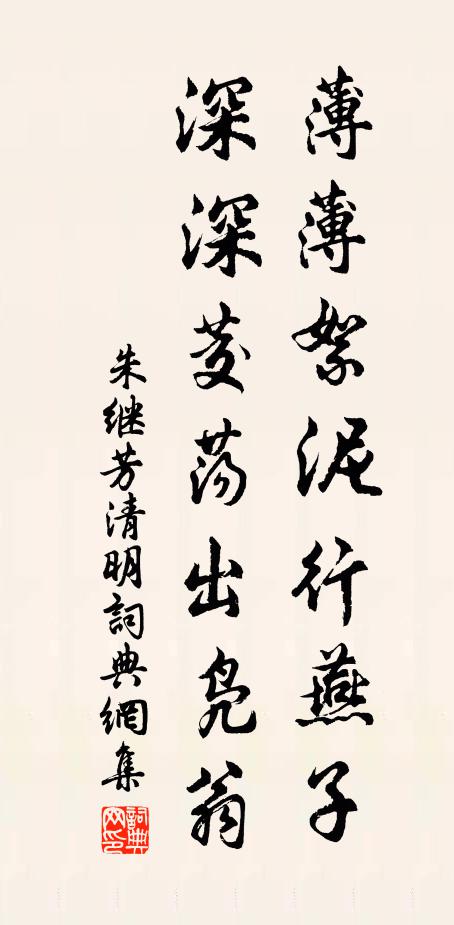 薄薄絮泥行燕子
深深茭荡出凫翁
朱继芳清明詞典網集
詞典网印